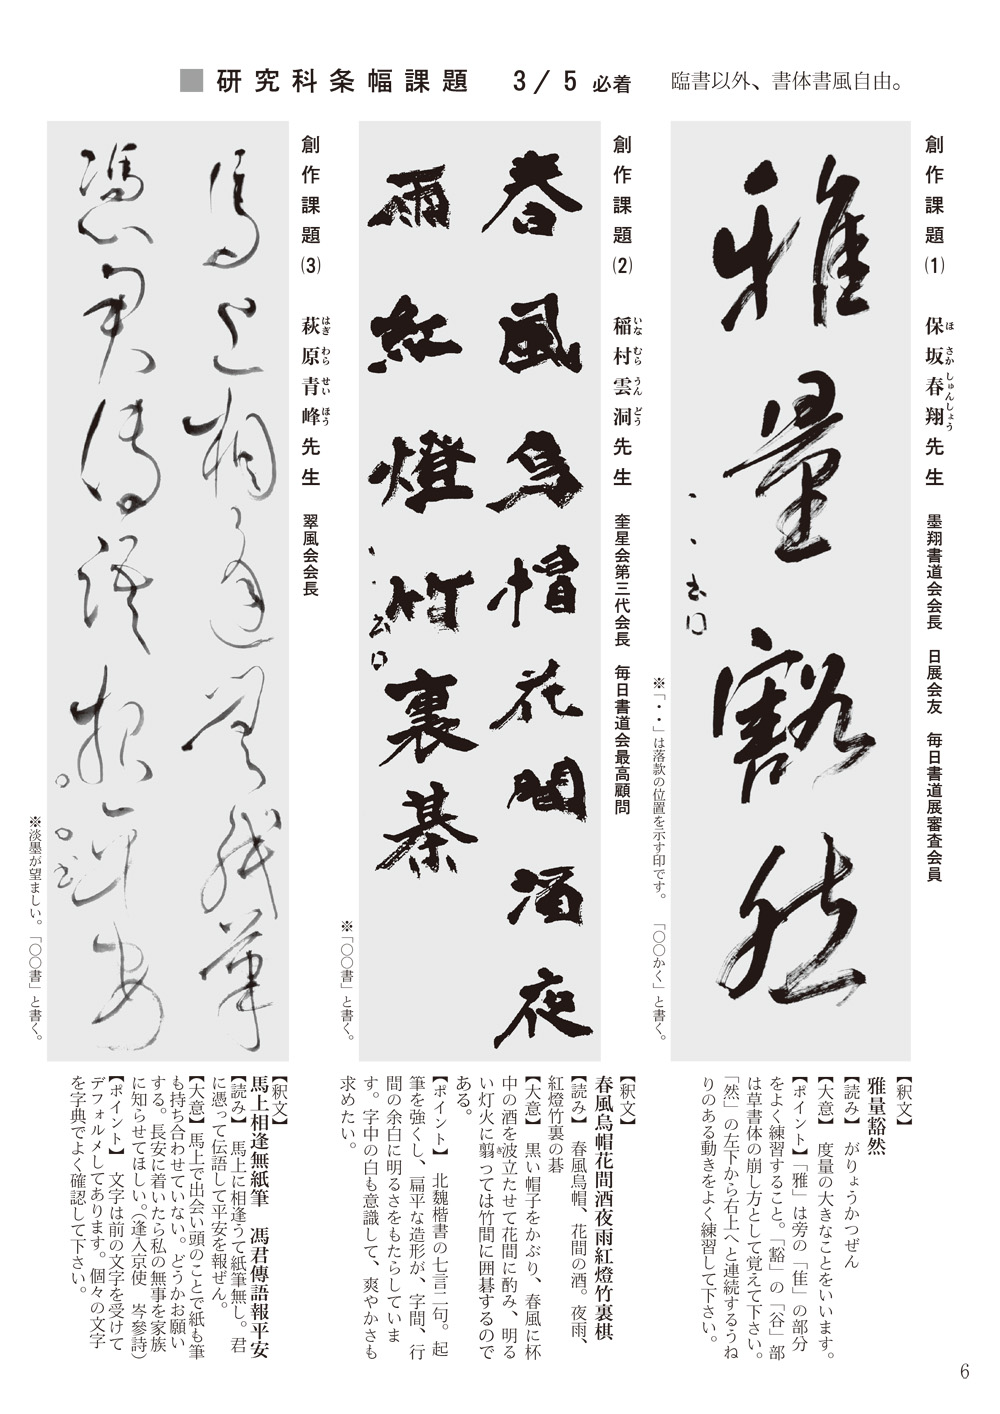 ■研究科条幅課題 3/5必着 臨書以外、書体書風自由。
創作課題(1) 保坂春翔先生 墨翔書道会会長 日展会友 毎日書道展審査会員
ほ さか しゅんしょう
雅量豁然
※「・・」は落款の位置を示す印です。「〇〇かく」と書く。
【釈文】
雅量豁然
【読み】 がりょうかつぜん
【大意】 度量の大きなことをいいます。
【ポイント】「雅」は旁の「隹」の部分
をよく練習すること。「豁」の「谷」部
は草書体の崩し方として覚えて下さい。
「然」の左下から右上へと連続するうね
りのある動きをよく練習して下さい。
創作課題(2) 稲村雲洞先生 奎星会第三代会長 毎日書道会最高顧問
いな むら うん どう
春風烏帽花間酒夜
雨紅燈竹裏棊
※「〇〇書」と書く。
【釈文】
春風烏帽花間酒夜雨紅燈竹裏棋
【読み】 春風烏帽、花間の酒。夜雨、
紅燈竹裏の碁
【大意】 黒い帽子をかぶり、春風に杯
中の酒を波立たせて花間に酌み、明る
い灯火に翳っては竹間に囲碁するので
ある。
【ポイント】 北魏楷書の七言二句。起
筆を強くし、扁平な造形が、字間、行
間の余白に明るさをもたらしていま
す。字中の白も意識して、爽やかさも
求めたい。
創作課題(3) 萩原青峰先生 翠風会会長
はぎ わら せい ほう
馬上相逢無紙筆
馮君傳語報平安
※淡墨が望ましい。「〇〇書」と書く。
【釈文】
馬上相逢無紙筆 馮君傳語報平安
【読み】 馬上に相逢うて紙筆無し。君
に憑って伝語して平安を報ぜん。
【大意】馬上で出会い頭のことで紙も筆
も持ち合わせていない。どうかお願い
する。長安に着いたら私の無事を家族
に知らせてほしい。(逢入京使 岑參詩)
【ポイント】 文字は前の文字を受けて
デフォルメしてあります。個々の文字
を字典でよく確認して下さい。
6